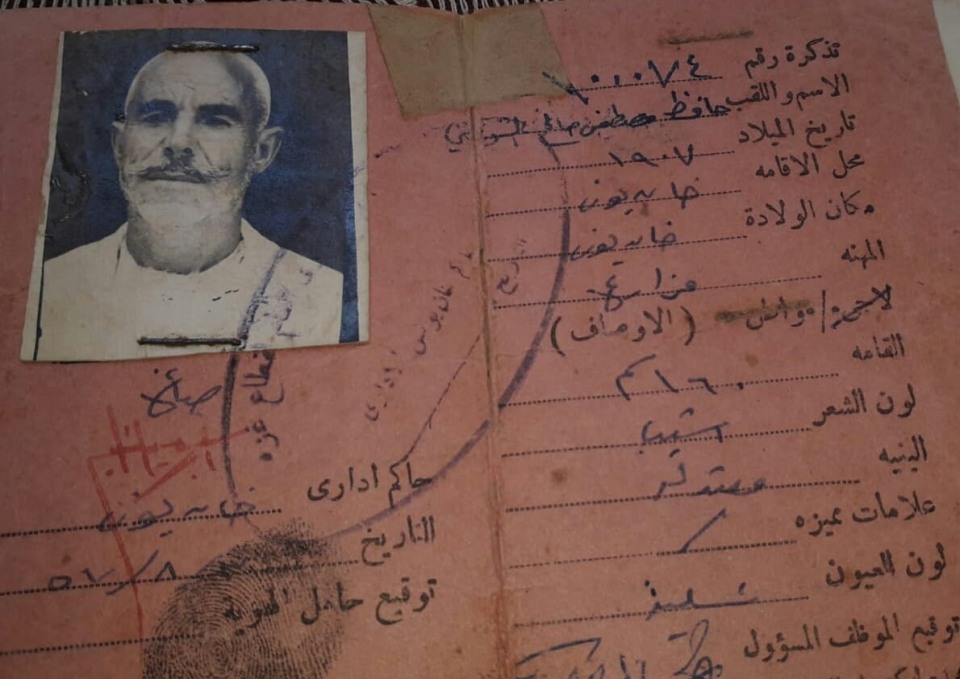 تذكرة رقم ١٠٠٠٧٤
الاسم واللقب حافظ مصطفى صالح
تاريخ الميلاد ١٩٠٧
محل الاقامه خانيونس
مكان الولادة خانيونس
المهنه مزارع
لاجئ / مواطن
( الاوصاف )
القامه ١٦٠ م
لون الشعر اشيب
البنيه معتدله
علامات مميزه /
لون العيون
توقيع الموظف المسؤول
قطاع غزه
حاكم خان يونس الادارى
التاريخ
حاكم ادارى خانيونس
التاريخ
توقيع حامل الهوية